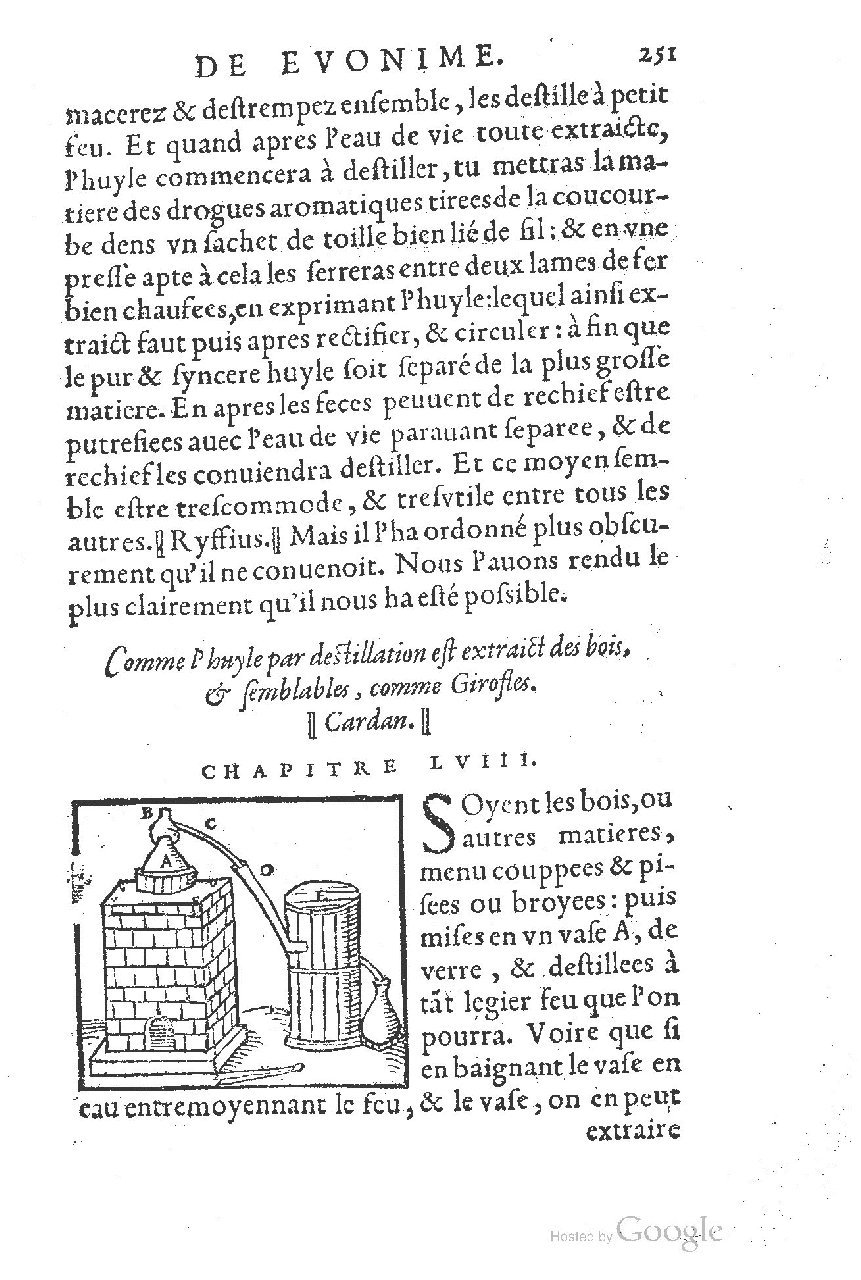 DE EVONIME. 251
macerez & deſtrempez enſemble, les deſtille à petit
feu. Et quand apres l'eau de vie toute extraicte,
l'huyle commencera à deſtiller, tu mettras la ma-
tiere des drogues aromatiques tirees de la coucour-
be dens vn ſachet de toille bien lié de fil: & en vne
preſſe apte à cela les ſerreras entre deux lames de fer
bien chaufees, en exprimant l'huyle: lequel ainſi ex-
traict faut puis apres rectifier, & circuler: à fin que
le pur & ſyncere huyle ſoit ſeparé de la plus groſſe
matiere. En apres les feces peuuent de rechief eſtre
putrefiees auec l'eau de vie parauant ſeparee, & de
rechief les conuiendra deſtiller. Et ce moyen ſem-
ble eſtre treſcommode, & treſvtile entre tous les
autres.‖Ryffius.‖ Mais il l'ha ordonné plus obſcu-
rement qu'il ne conuenoit. Nous l'auons rendu le
plus clairement qu'il nous ha eſté poſsible.
Comme l'huyle par deſtillation eſt extraict des bois,
& ſemblables, comme Girofles.
‖ Cardan. ‖
CHAPITRE LVIII.
B
C
A
D
E
SOyent les bois, ou
autres matieres,
menu couppees & pi-
ſees ou broyees: puis
miſes en vn vaſe A, de
verre, & deſtillees à
tãt legier feu que l'on
pourra. Voire que ſi
en baignant le vaſe en
eau entremoyennant le feu, & le vaſe, on en peut
extraire
Hosted by Google